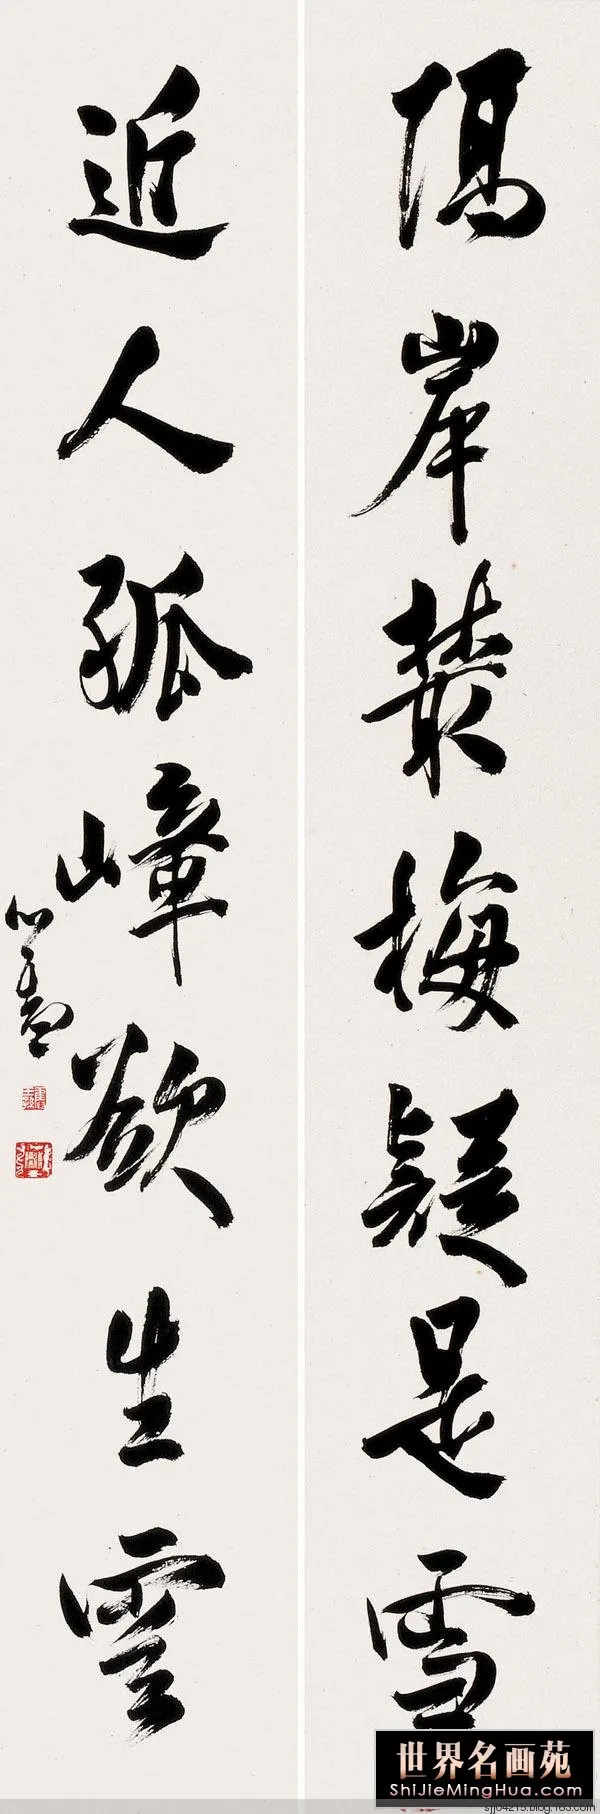 隔岸叢梅疑是雪
近人孤嶂欲生雲
心畬
世界名画苑
ShiJieMingHua.com
sjj04215.blog.163.com